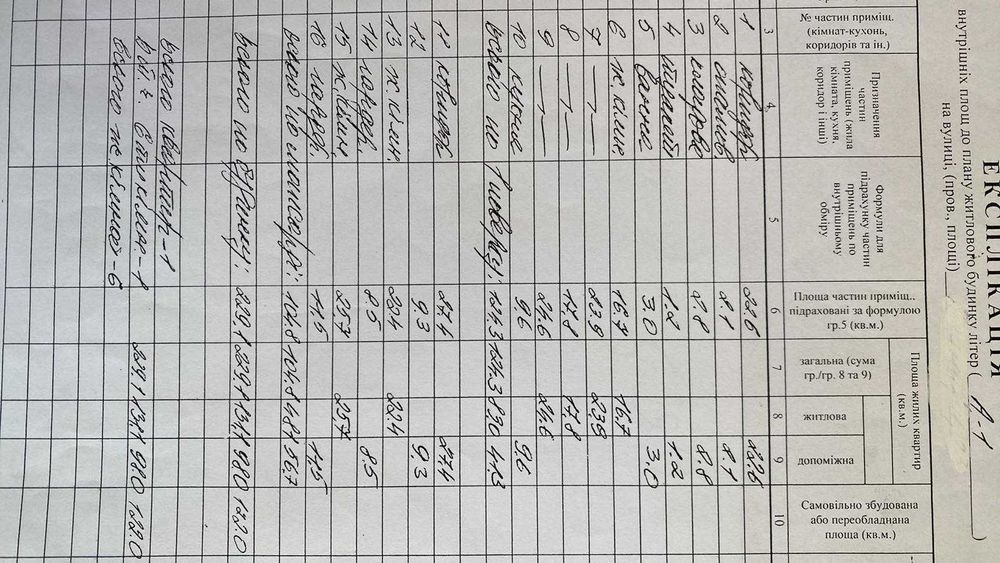 ЕКСПЛІКАЦІЯ
внутрішніх площ до плану житлового будинку літер ( А-1 )
на вулиці, (пров., площі)
№ частин приміщ. (кімнат-кухонь, коридорів та ін.) Призначення частин приміщень (жила кімната, кухня, коридор і інші) Формули для підрахунку частин приміщень по внутрішньому обміру Площа частин приміщ.. підраховані за формулою гр.5 (кв.м.) Площа жилих квартир (кв.м.) загальна (сума гр./гр. 8 та 9) житлова допоміжна Самовільно збудована або переобладнана площа (кв.м.)
3 4 5 6 7 8 9 10
1 коридор 22.6 22.6
2 2.1 2.1
3 2.8 2.8
4 1.2 1.2
5 Ванна 3.0 3.0
6 ж.кімн 16.7 16.7
7 —"— 23.9 23.9
8 —"— 17.8 17.8
9 —"— 24.6 24.6
10 кухня 9.6 9.6
Всього по І поверху: 124.3 124.3 83.0 41.3
11 27.4 27.4
12 9.3 9.3
13 ж.кімн. 22.4 22.4
14 8.5 8.5
15 ж.кімн 25.7 25.7
16 11.5 11.5
Всього по 104.8 104.8 48.1 56.7
Всього по будинку: 229.1 229.1 131.1 98.0 152.0
Всього квартир-1
229.1 131.1 98.0 152.0
Всього ж.кімнат-6